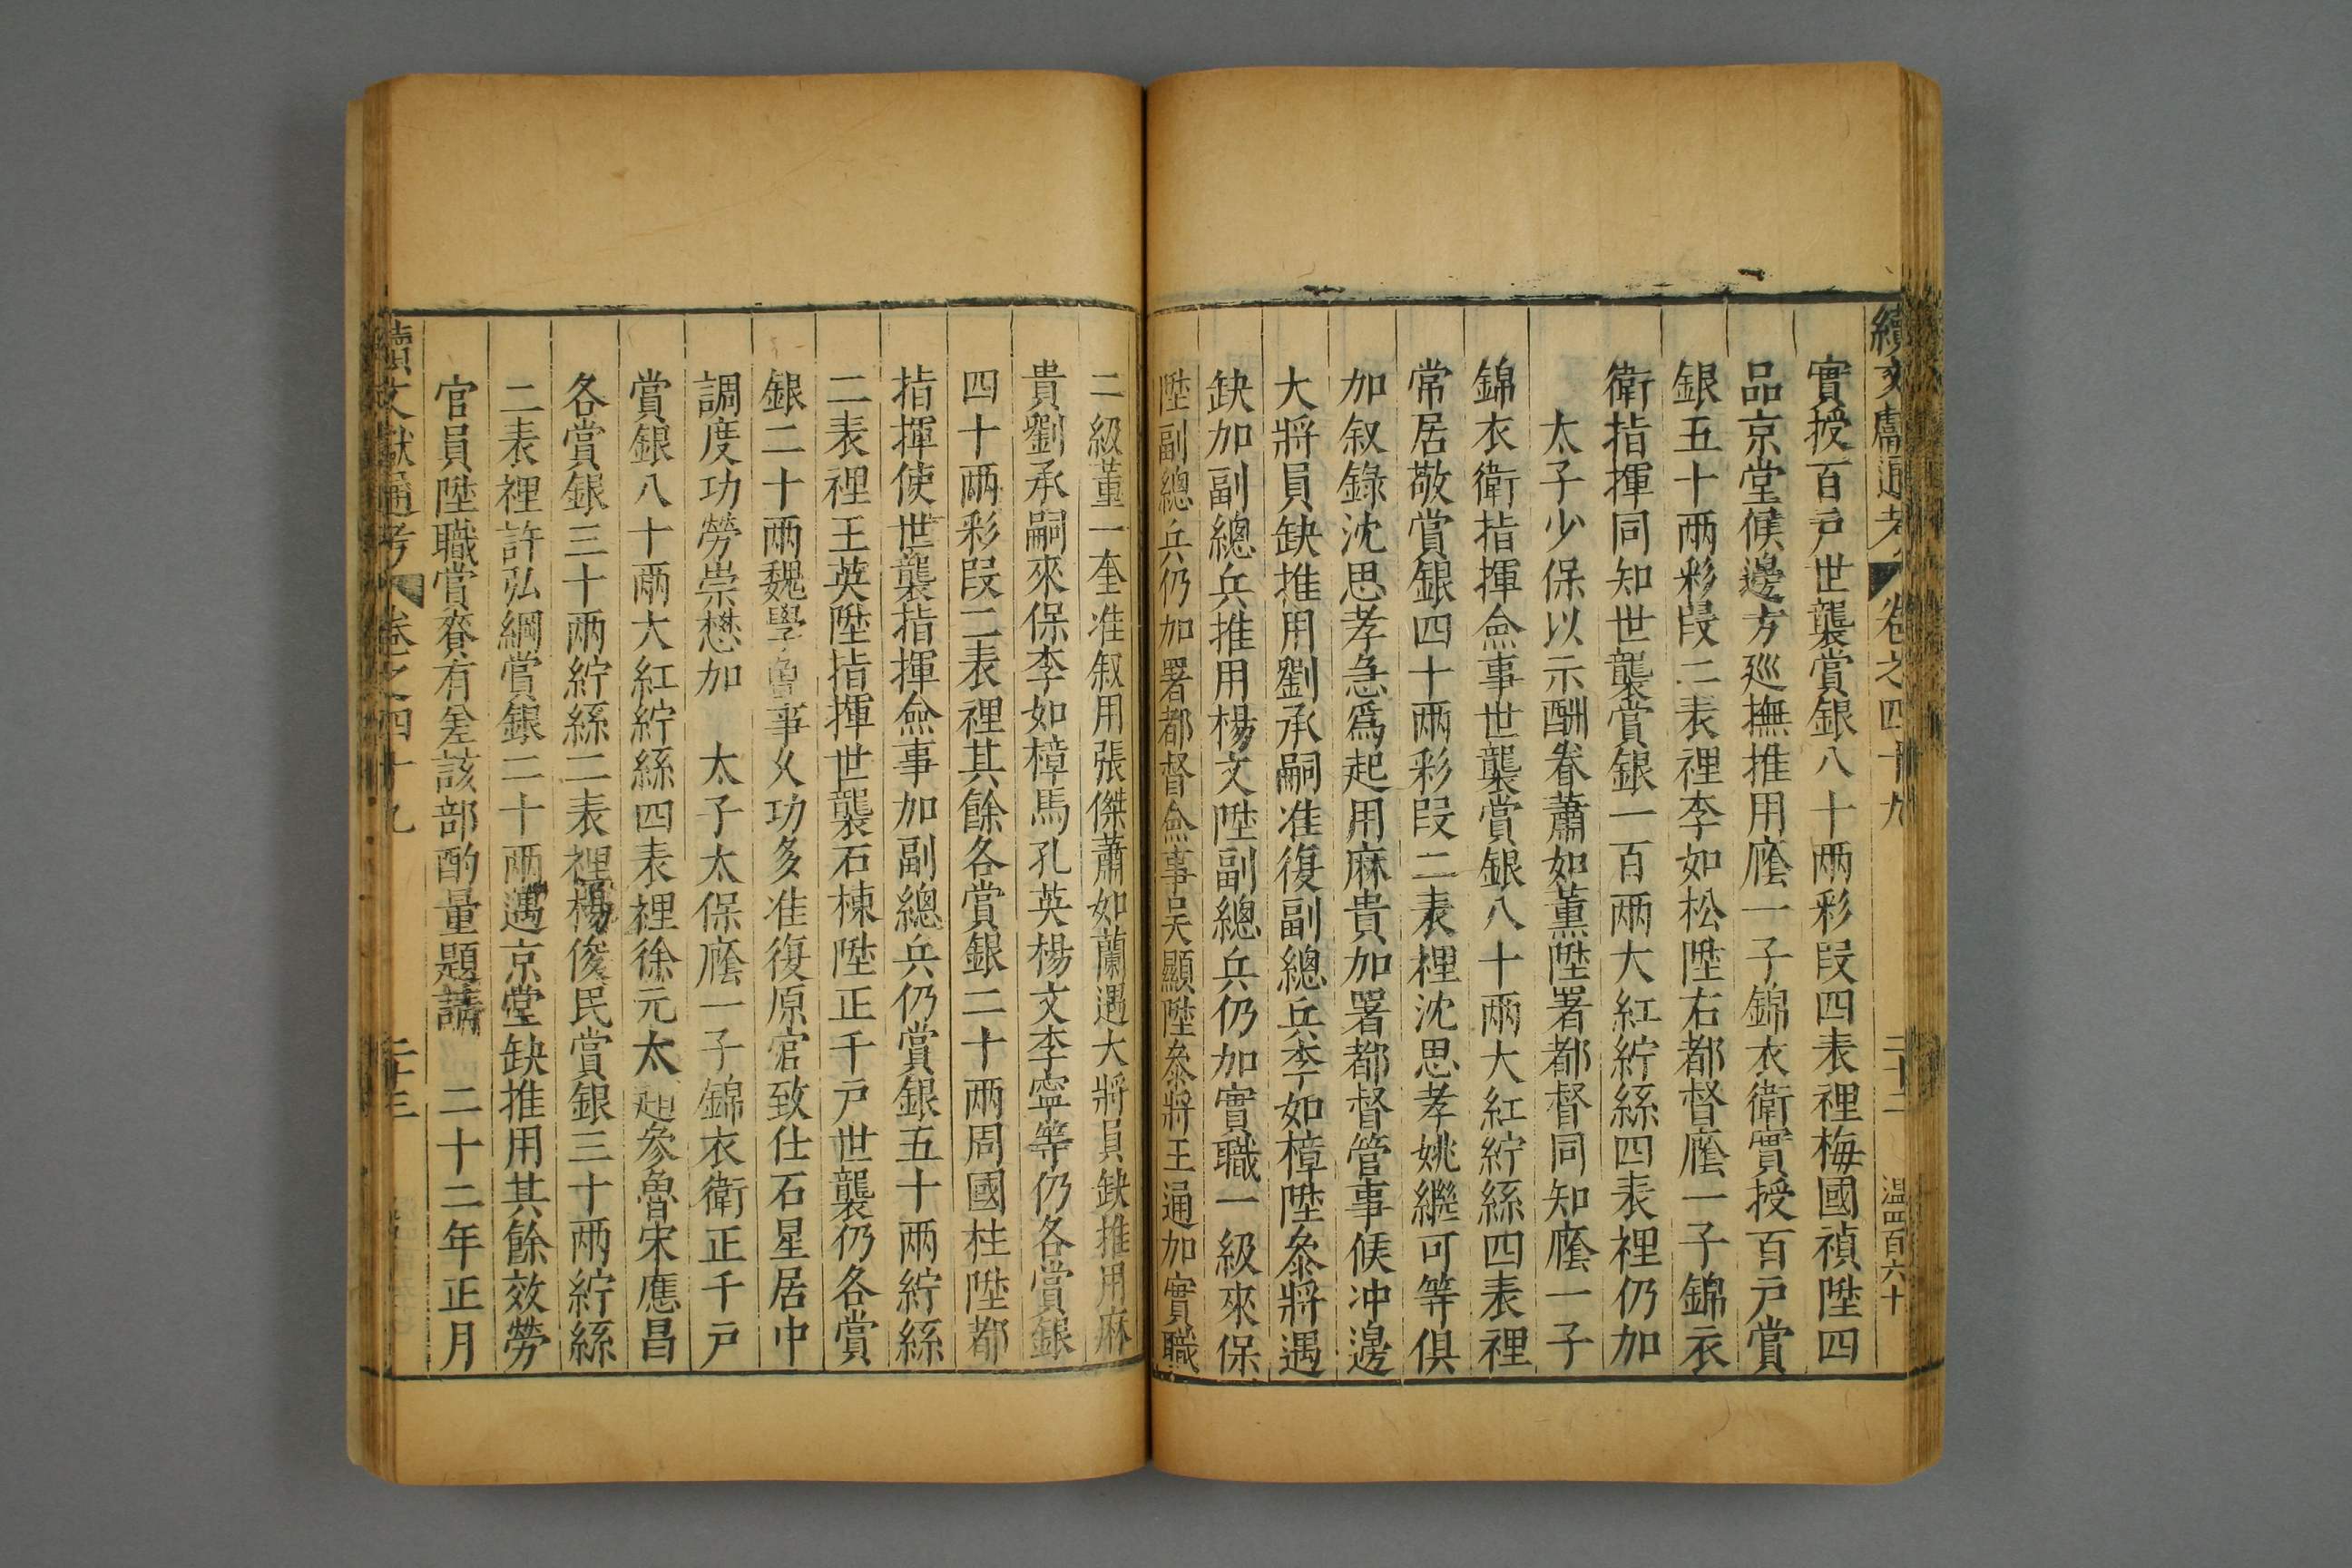 續文獻通考 卷之四十九 二十二 温四百六十
實授百戸世襲賞銀八十兩彩段四表裡梅國禎陞四
品京堂候邊方廵撫推用廕一子錦衣衛實授百戸賞
銀五十兩彩段二表裡李如松陞右都督廕一子錦衣
衛指揮同知世襲賞銀一百兩大紅紵絲四表裡仍加
太子少保以示酬眷蕭如薰陞署都督同知廕一子
錦衣衛指揮僉事世襲賞銀八十兩大紅紵絲四表裡
常居敬賞銀四十兩彩段二表裡沈思孝姚繼可等俱
加叙錄沈思孝急爲起用麻貴加署都督管事候冲邊
大將員缺推用劉承嗣准復副總兵李如樟陞叅將遇
缺加副總兵推用楊文陞副總兵仍加實職一級來保
陞副總兵仍加署都督僉事吴顯陞叅將王通加實職
二級董一奎准叙用張傑蕭如蘭遇大將員缺推用麻
貴劉承嗣來保李如樟馬孔英楊文李寧等仍各賞銀
四十兩彩段二表裡其餘各賞銀二十兩周國柱陞都
指揮使世襲指揮僉事加副總兵仍賞銀五十兩紵絲
二表裡王英陞指揮世襲石棟陞正千戸世襲仍各賞
銀二十兩魏學曾事乆功多准復原官致仕石星居中
調度功勞崇懋加 太子太保廕一子錦衣衛正千戸
賞銀八十兩大紅紵絲四表裡徐元太趙參魯宋應昌
各賞銀三十兩紵絲二表裡楊俊民賞銀三十兩紵絲
二表裡許弘綱賞銀二十兩遇京堂缺推用其餘效勞
官員陞職賞賚有差該部酌量題請 二十二年正月
續文獻通考 卷之四十九 二十三